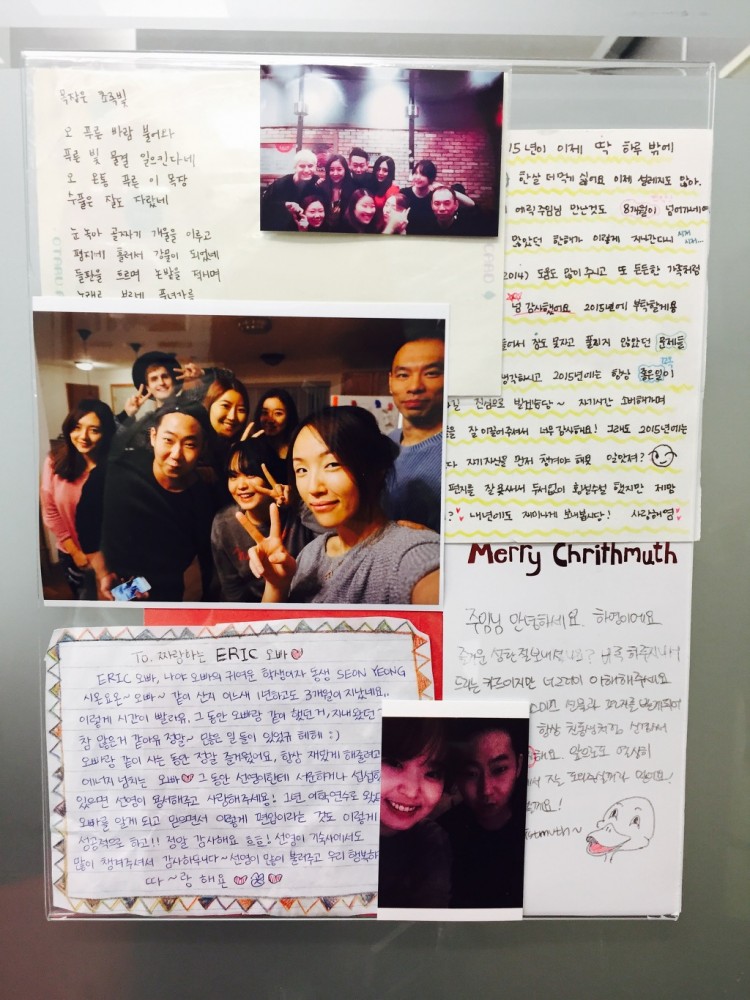 목장은 초록빛
오 푸른 바람 불어와
푸른 빛 물결 일으킨다네
오 온통 푸른 이 목장
수풀은 잘도 자랐네
눈 녹아 골짜기 개울을 이루고
평지에 흘러서 강물이 되었네
들판을 흐르며 논밭을 적시며
15년이 이제 딱 하루 밖에
한살 더 먹기 싫어요 이제 설레지도 않아.
에릭주임님 만난것도 8개월이 넘어가네여
많았던 한해가 이렇게 지나간다니
2014) 도움도 많이 주시고 또 든든한 가족처럼
넘 감사했어요 2015년에 부탁할게용
잠도 못자고 풀리지 않았던 문제들
생각하시고 2015년에는 항상 좋은일이
진심으로 빌겠습당~ 자기시간 소비해가며
잘 이끌어주셔서 너무 감사해요! 그래도 2015년에는
자기자신을 먼저 챙겨야 해요 알았져?
편지를 잘 못써서 두서없이 횡설수설 했지만 제맘
? 내년에도 재미나게 보내봅시당! 사랑해영
Merry Chrithmuth
주임님 안녕하세요. 하영이에요
즐거운 성탄 잘보내셨나요?
드리는 카드이지만 너그러이 이해해주세요
항상 친동생처럼
해요. 앞으로도 열심히
할게요!
To. 짜랑하는 ERIC 오빠
ERIC 오빠, 나야 오빠의 귀여운 학생이자 동생 SEON YEONG
시온요온~ 오빠~ 같이 산지 어느새 1년하고도 3개월이 지났네요..
이렇게 시간이 빨라유, 그동안 오빠랑 같이 했던거, 지내왔던
참 많은거 같아유 정말~ 많은 일들이 있었규 헤헤 :)
오빠랑 같이 사는 동안 정말 즐거웠어요, 항상 재밌게 해줄려고
에너지 넘치는 오빠 그 동안 선영이한테 서운하거나 섭섭
있으면 선영이 용서해주고 사랑해주세용! 1년 어학연수로 왔
오빠를 알게 되고 믿으면서 이렇게 편입이라는 것도 이렇게
성공적으로 하고!! 정말 감사해요 흐흐! 선영이 기숙사에서도
많이 챙겨주셔서 감사하두니다~ 선영이 많이 불러주고 우리 행복하
따~랑 해요